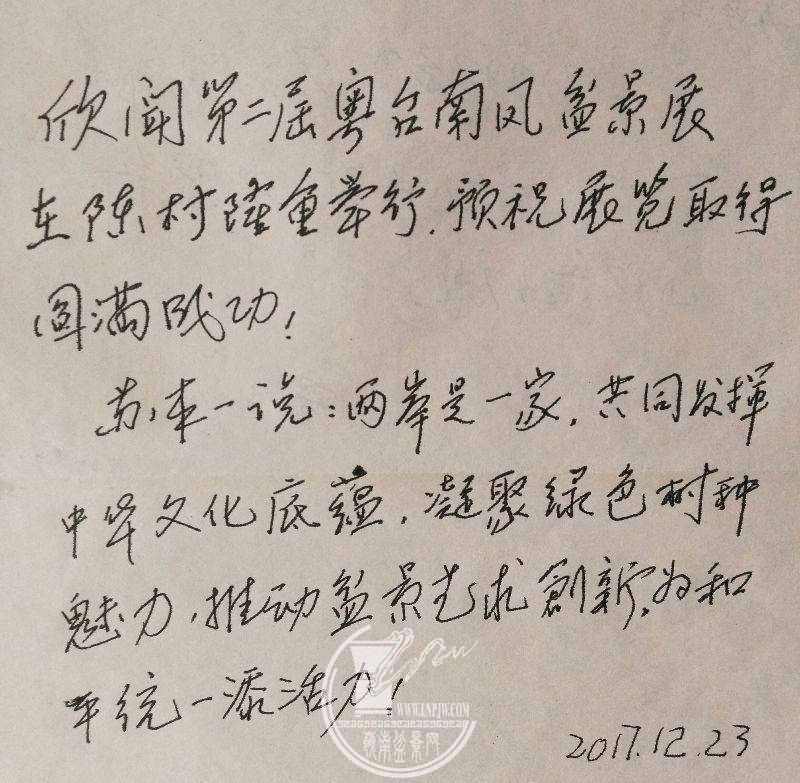 欣闻第二届粤台南风盆景展
在陈村隆重举行.预祝展览取得
圆满成功!
苏本一说:两岸是一家,共同发揮
中华文化底蕴,凝聚绿色树种
魅力,推动盆景艺术創新,为和
平统一添活力!
2017.12.23
WWW.LNPJW.COM
岭南盆景网